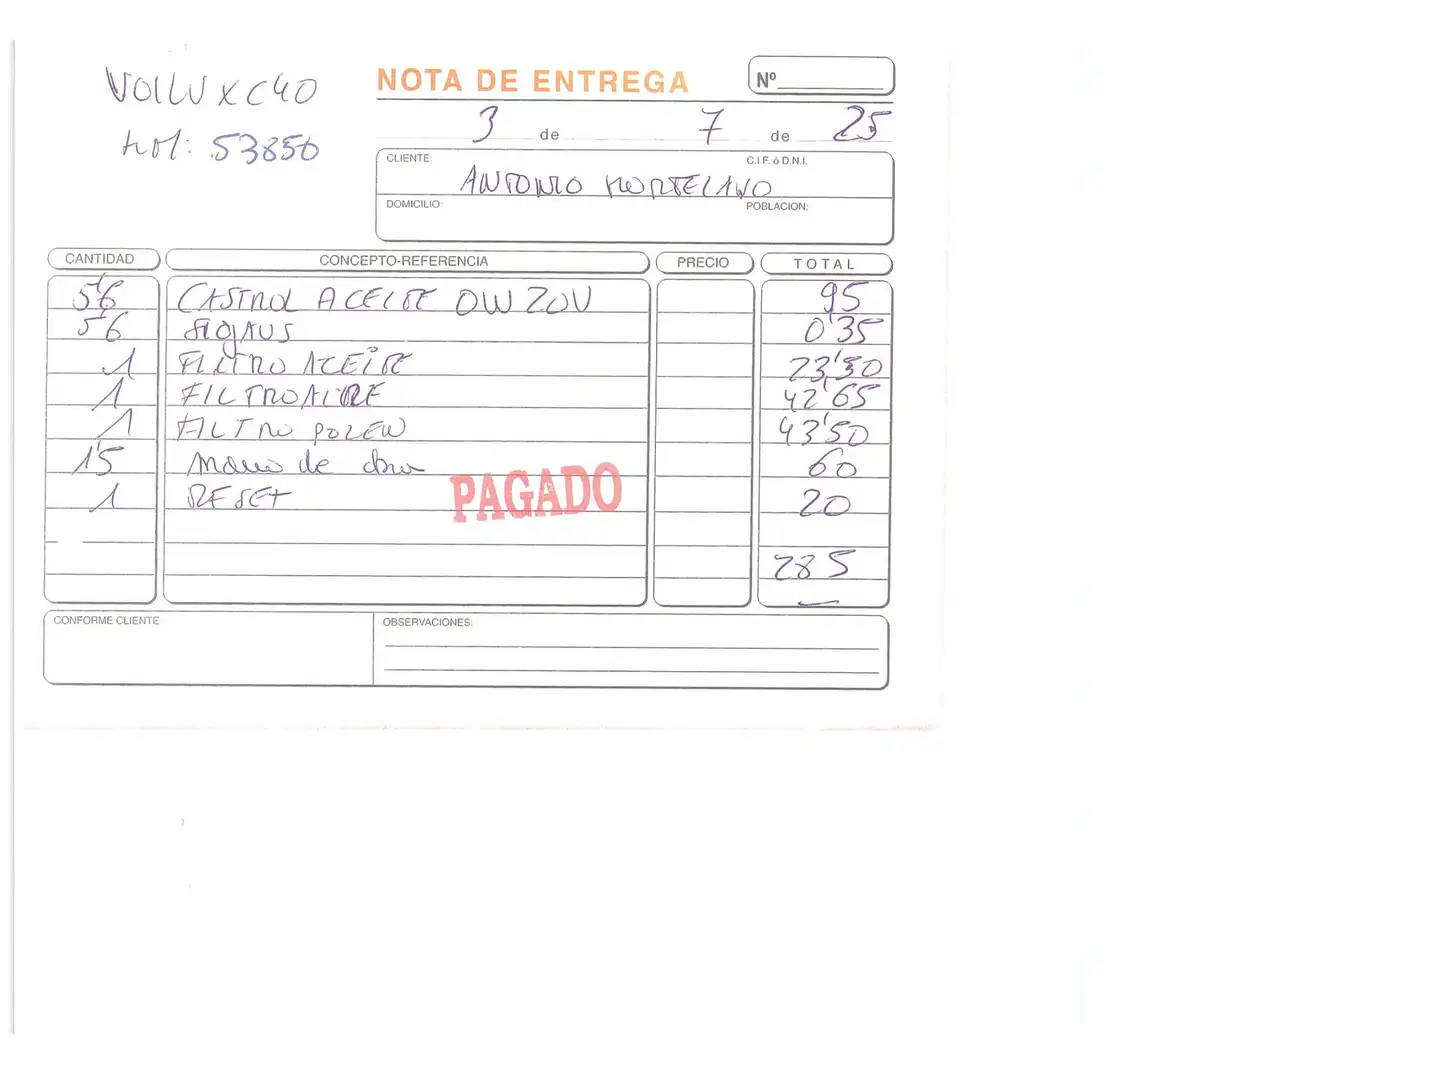 VOLVO XC40
KM: 53850
NOTA DE ENTREGA
Nº
3 de 7 de 25
CLIENTE: C.I.F. ó D.N.I.
ANTONIO HORTELANO
DOMICILIO: POBLACION:
CANTIDAD CONCEPTO-REFERENCIA PRECIO TOTAL
5'6 CASTROL ACEITE 0W20V 95
5'6 SIGAUS 0'35
1 FILTRO ACEITE 23'50
1 FILTRO AIRE 42'65
1 FILTRO POLEN 43'50
1'5 Mano de obra 60
1 RESET 20
PAGADO
285
CONFORME CLIENTE OBSERVACIONES: